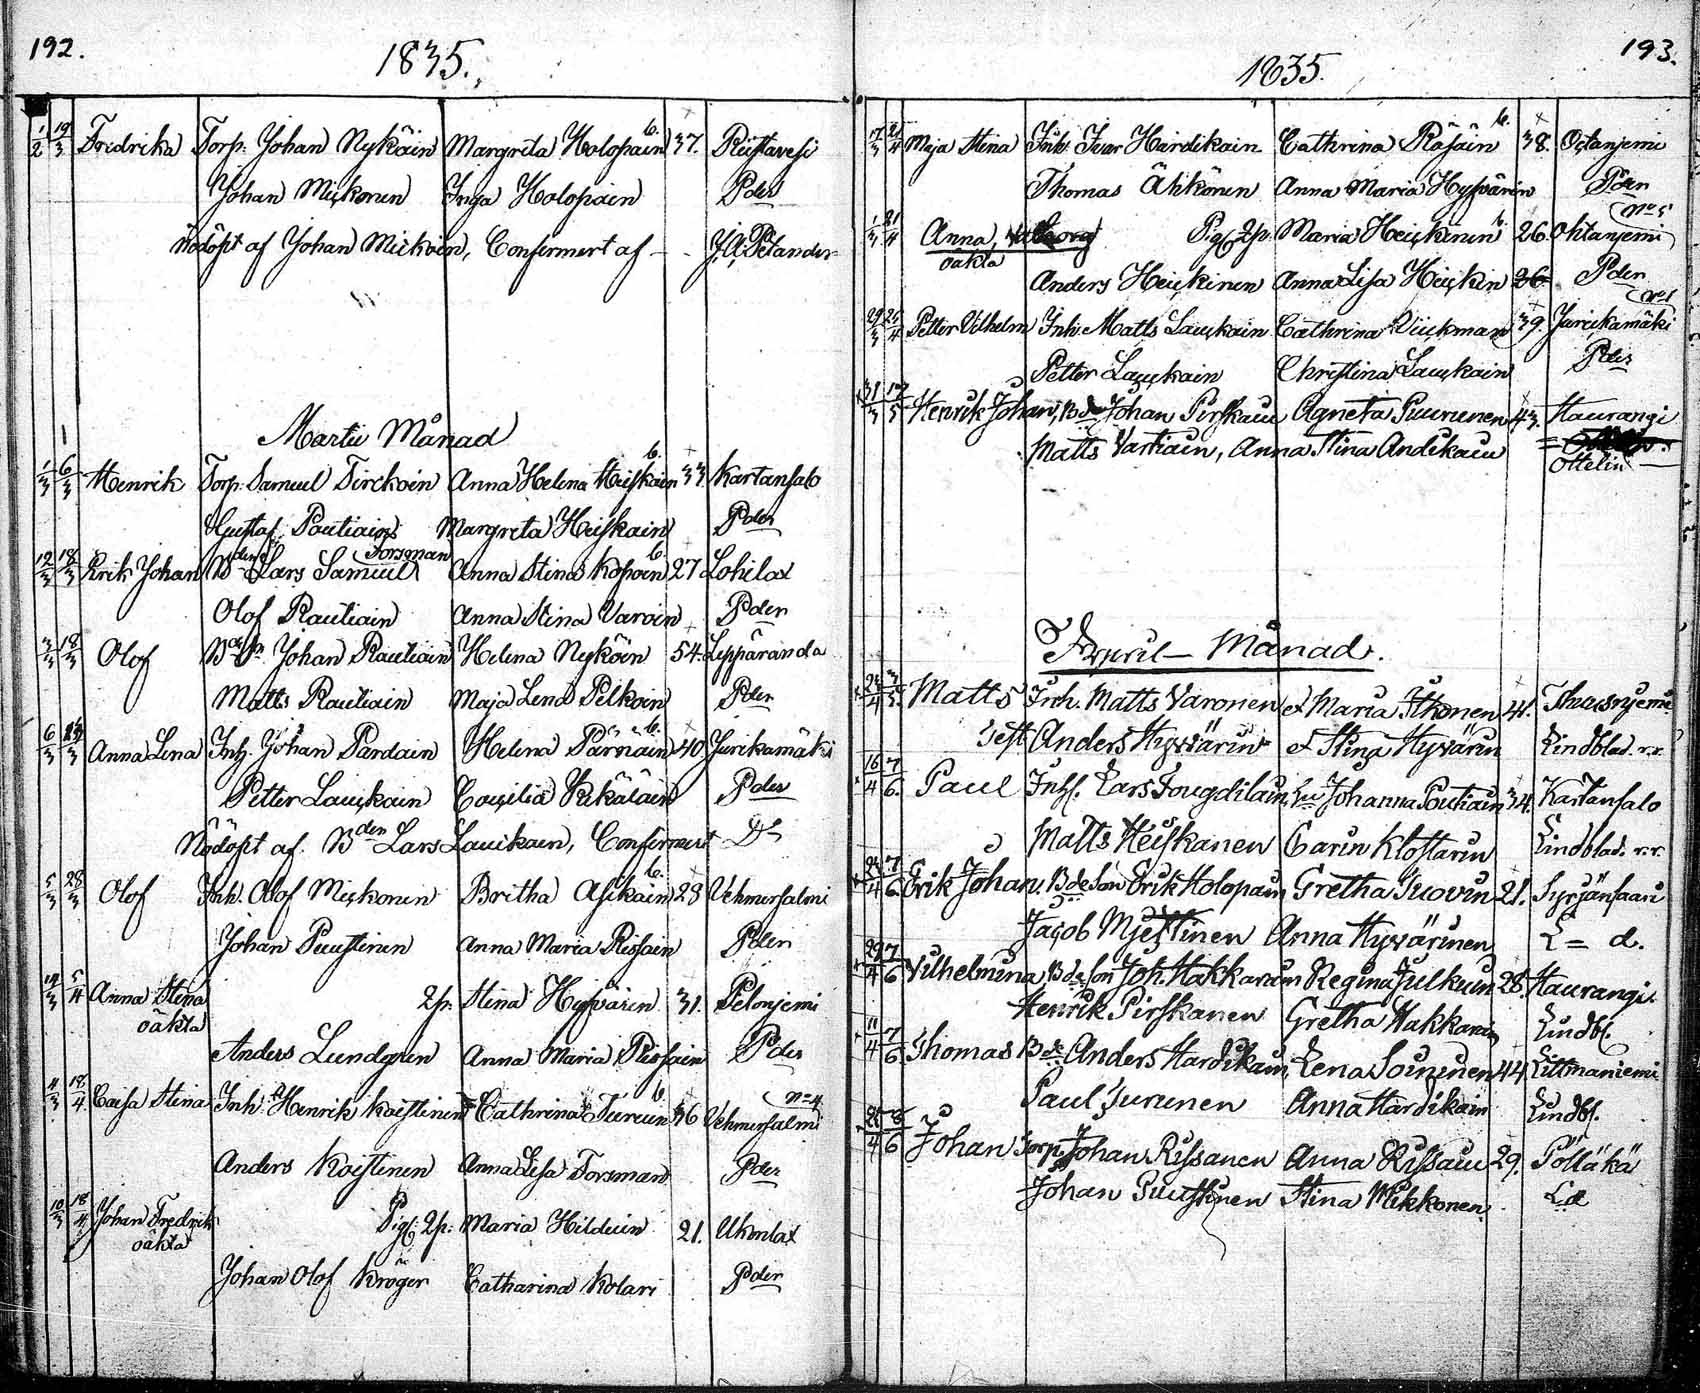 192.
1835.
1/2 19/3 Fredrika Torp. Johan Nykäin Margreta Holopain 37. Riistavesi
Johan Mickonen Inga Holopain Pder
Nödöpt af Johan Mickoin, Confirmert af - - J. A. Pelander
Martii Månad
1/3 6/3 Henrik Torp. Samuel Tirckoin Anna Helena Heiskain 33. Kartansalo
Gustaf Poutiain Margreta Heiskain Pder
12/3 18/3 Erik Johan Bden Lars Samuel Forsman Anna Stina Kopoin 27 Lohilax
Olof Rautiain Anna Stina Varoin Pder
3/3 18/3 Olof Johan Rautiain Helena Nyköin 54. Leppäranda
Matts Rautiain Maja Lena Pelkoin Pder
6/3 Anna Lena Inh. Johan Pardain Helena Pärnäin 40. Jurikamäki
Petter Lauckain Cecilia Kekäläin Pder
Nödöpt af Bden Lars Lauikain, Confirmert Do
5/3 28/3 Olof Inh. Olof Mickonen Britha Asikain 28 Vehmersalmi
Johan Puustinen Anna Maria Rissain Pder
14/3 5/4 Anna Stina 2p. Stina Hyfvären 31. Pelonjemi
oäkta
Anders Lundgren Anna Maria Rissain Pder
4/3 18/4 Caisa Stina Inh. Henrik Koistinen Cathrina Turuin 36 Vehmersalmi No 4
Anders Koistinen Anna Lisa Forsman Pder
10/3 18/4 Johan Fredrik Pig. 2p. Maria Hilduin 21. Ukonlax
oäkta
Johan Olof Kröger Catharina Kolari Pder
193.
1835.
17/3 21/4 Maja Stina Inh. Ivar Hardikain Cathrina Räsäin 38. Ostanjemi
Thomas Ähkönen Anna Maria Hyfvärin Pden
1/3 21/4 Anna, Pig. 2p. Maria Heickinen 26. Ohtanjemi No 5
oäkta
Anders Heickinen Anna Lisa Heickin 26 Pden
29/3 25/4 Petter Vilhelm Inh. Matts Lauckain Cathrina Vickman 39. Jurickamäki No 1
Petter Lauckain Christina Lauckain Pder
31/3 17/5 Henrik Johan, Bde Johan Pirskain Agneta Puurunen 43. Haurangi
Matts Vartiain, Anna Stina Andikain
Ottelin —
April — Månad.
24/4 3/5 Matts Inh. Matts Varonen et Maria Ikonen 41.
Test. Anders Hyvärin et Stina Hyvärin Lindblad. v.r.
16/4 7/6. Paul Inh. Lars Fougdilain, Hu Johanna Poutiain 34. Kartansalo
Matts Heiskanen Carin Klostarin Lindblad. v.r.
24/4 7/6 Erik Johan, Bdeson Erik Holopain Gretha Suovin 21. Syrjänsaari
Jacob Myettinen Anna Hyvärinen L = d.
29/4 7/6 Vilhelmina Bdeson Joh. Hakkarain Regina Julkuin 28. Haurangi.
Henrik Pirskanen Gretha Hakkarain Lindbl.
11/4 7/6. Thomas Bde Anders Hardikain, Lena Soininen 44 Littmaniemi
Paul Jurunen Anna Hardikain Lindbl.
26/4 8/6 Johan Torp. Johan Rissanen Anna Rissain 29. Pölläkä
Johan Puustinen Stina Mikkonen. Ld